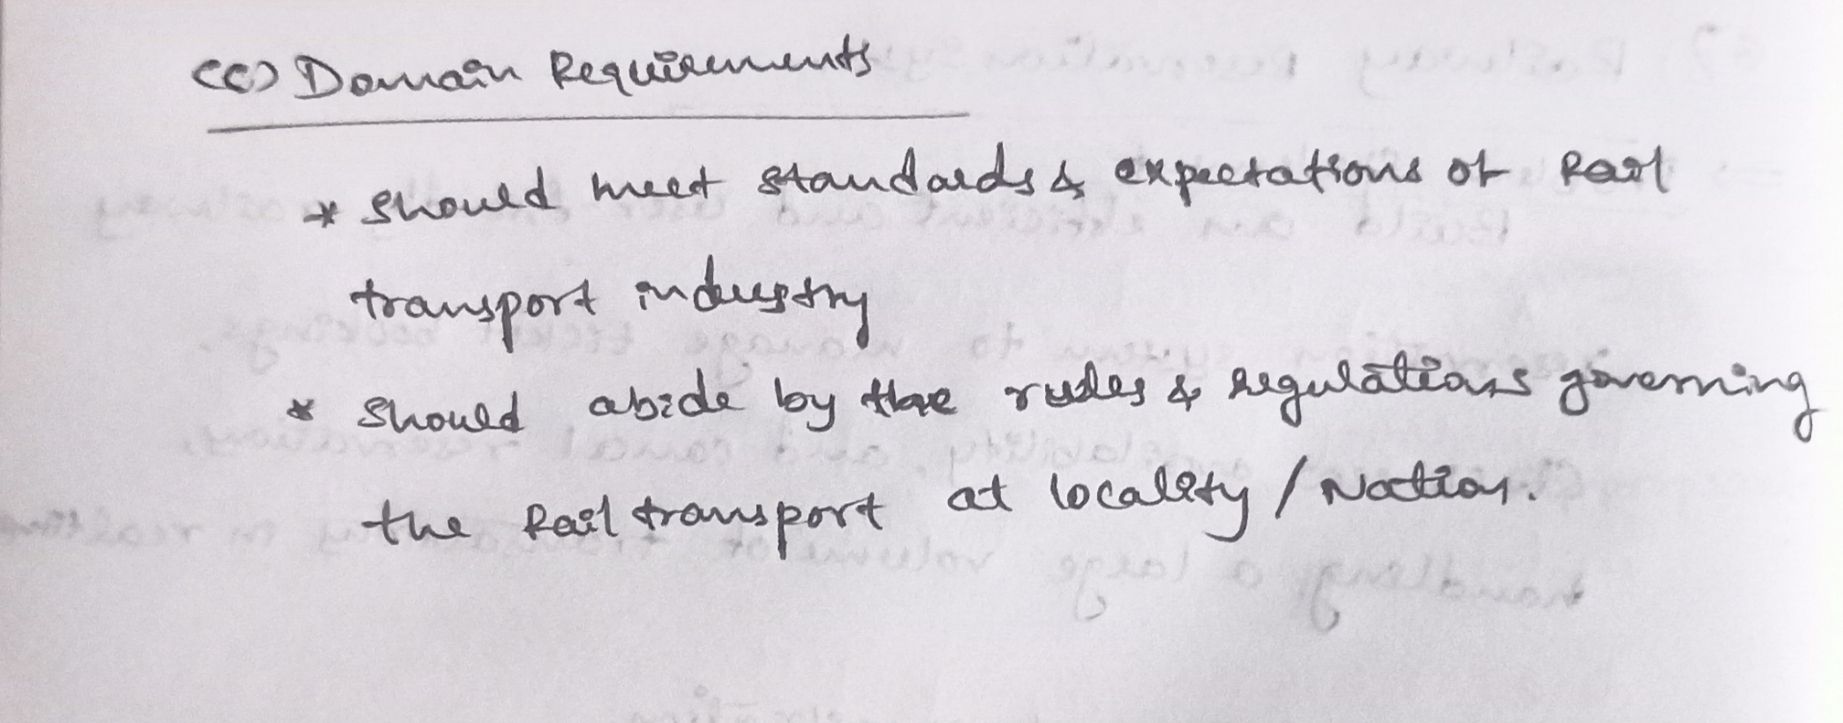 (C) Domain Requirements
* Should meet standards & expectations of Rail
transport industry
* Should abide by the rules & regulations governing
the Rail transport at locality / Nation.